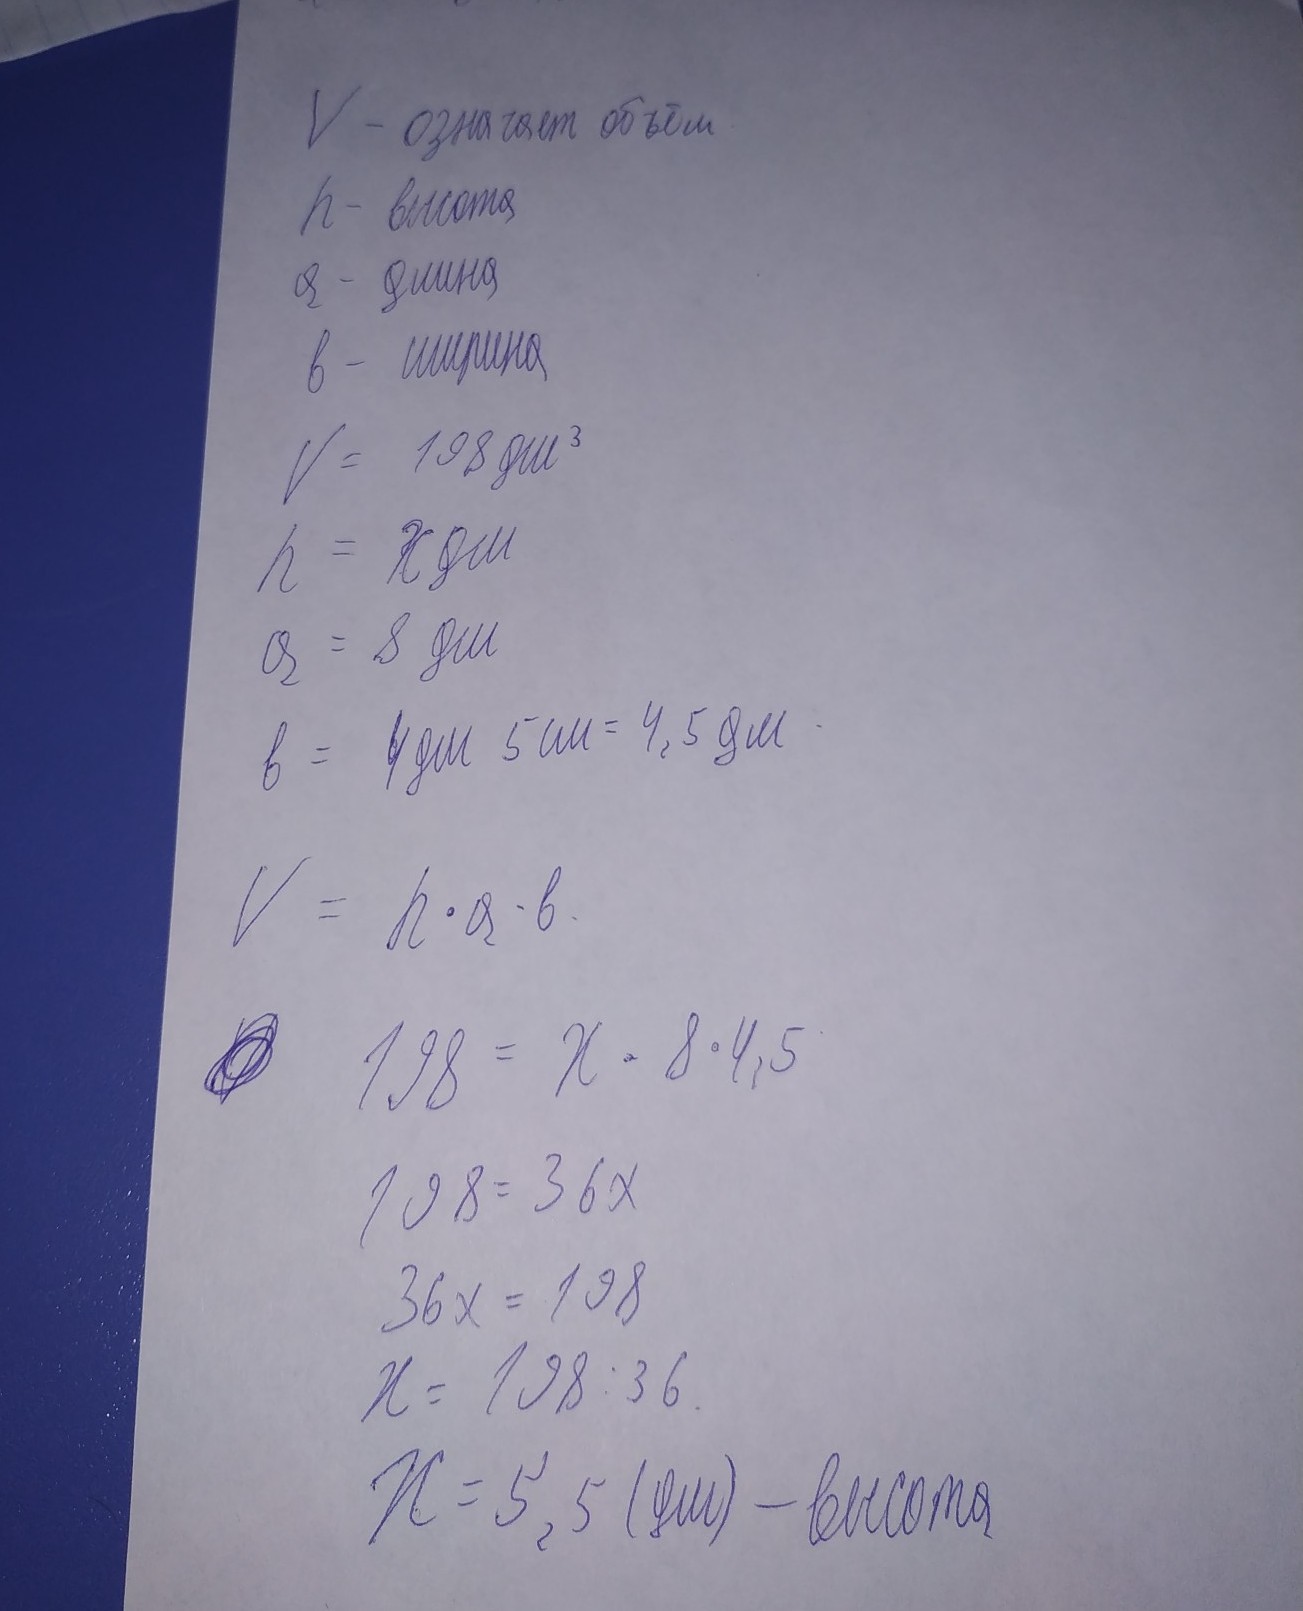 V - означает объём
h - высота
a - длина
в - ширина
V = 198 дм³
h = x дм
a = 8 дм
в = 4 дм 5 см = 4,5 дм.
V = h · a · в.
198 = x · 8 · 4,5
198 = 36x
36x = 198
x = 198 : 36.
x = 5,5 (дм) - высота